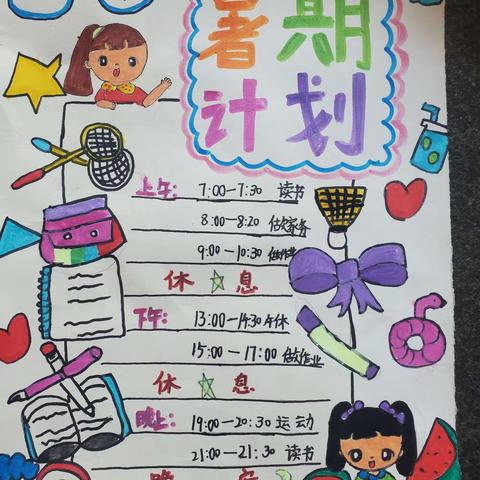 暑期
计划
上午: 7:00-7:30 读书
8:00-8:20 做家务
9:00-10:30 做作业
休☆息
下午: 13:00-14:30 午休
15:00-17:00 做作业
休☆息
晚上: 19:00-20:30 运动
21:00-21:30 读书
晚安